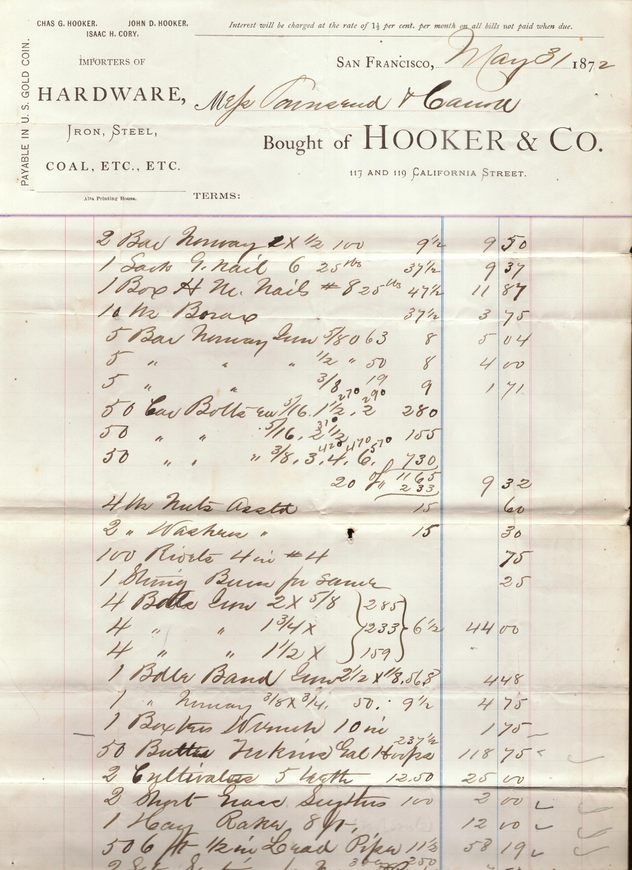 CHAS G. HOOKER. JOHN D. HOOKER.
ISAAC H. CORY.
Interest will be charged at the rate of 1½ per cent. per month on all bills not paid when due.
PAYABLE IN U. S. GOLD COIN.
IMPORTERS OF
HARDWARE,
IRON, STEEL,
COAL, ETC., ETC.
Alta Printing House.
SAN FRANCISCO, May 31 1872
Mess Townsend &
Bought of HOOKER & CO.
117 AND 119 CALIFORNIA STREET.
TERMS:
2 Bar Norway 2 X ½ 100 9½ 9 50
1 Sack G. Nail 6 25 lbs 37½ 9 37
1 Box H M. Nails #8 25 lbs 47½ 11 87
10 lbs Borax 37½ 3 75
5 Bar Norway 5/8 063 8 5 04
5 " " ½ " 50 8 4 00
5 " " 3/8 19 9 1 71
270 290
50 Car Bolts 5/16. 1½, 2 280
310
50 " " 5/16, 2½ 155
420 470 570
50 " " " 3/8, 3, 4, 6, 730
1165
20 % 233 9 32
4 lbs Nuts Asstd 15 60
2 " Washers " 15 30
100 Rivets 4 in #4 75
1 for same 25
4 Bolts 2 X 5/8 285
4 " " 1¾ X 233 6½ 44 00
4 " " 1½ X 159
1 Bdle Band 2½ X 1/8, 56 8 4 48
1 " Norway 3/8 X 3/4. 50. 9½ 4 75
1 Wrench 10 in 1 75
237½
50 Gal Hoops 118 75
2 Cultivators 5 teeth 12.50 25 00
2 Short Grass Scythes 100 2 00
1 Hay Raker 8 ft. 12 00
506 ft ½ in Lead Pipe 11½ 58 19